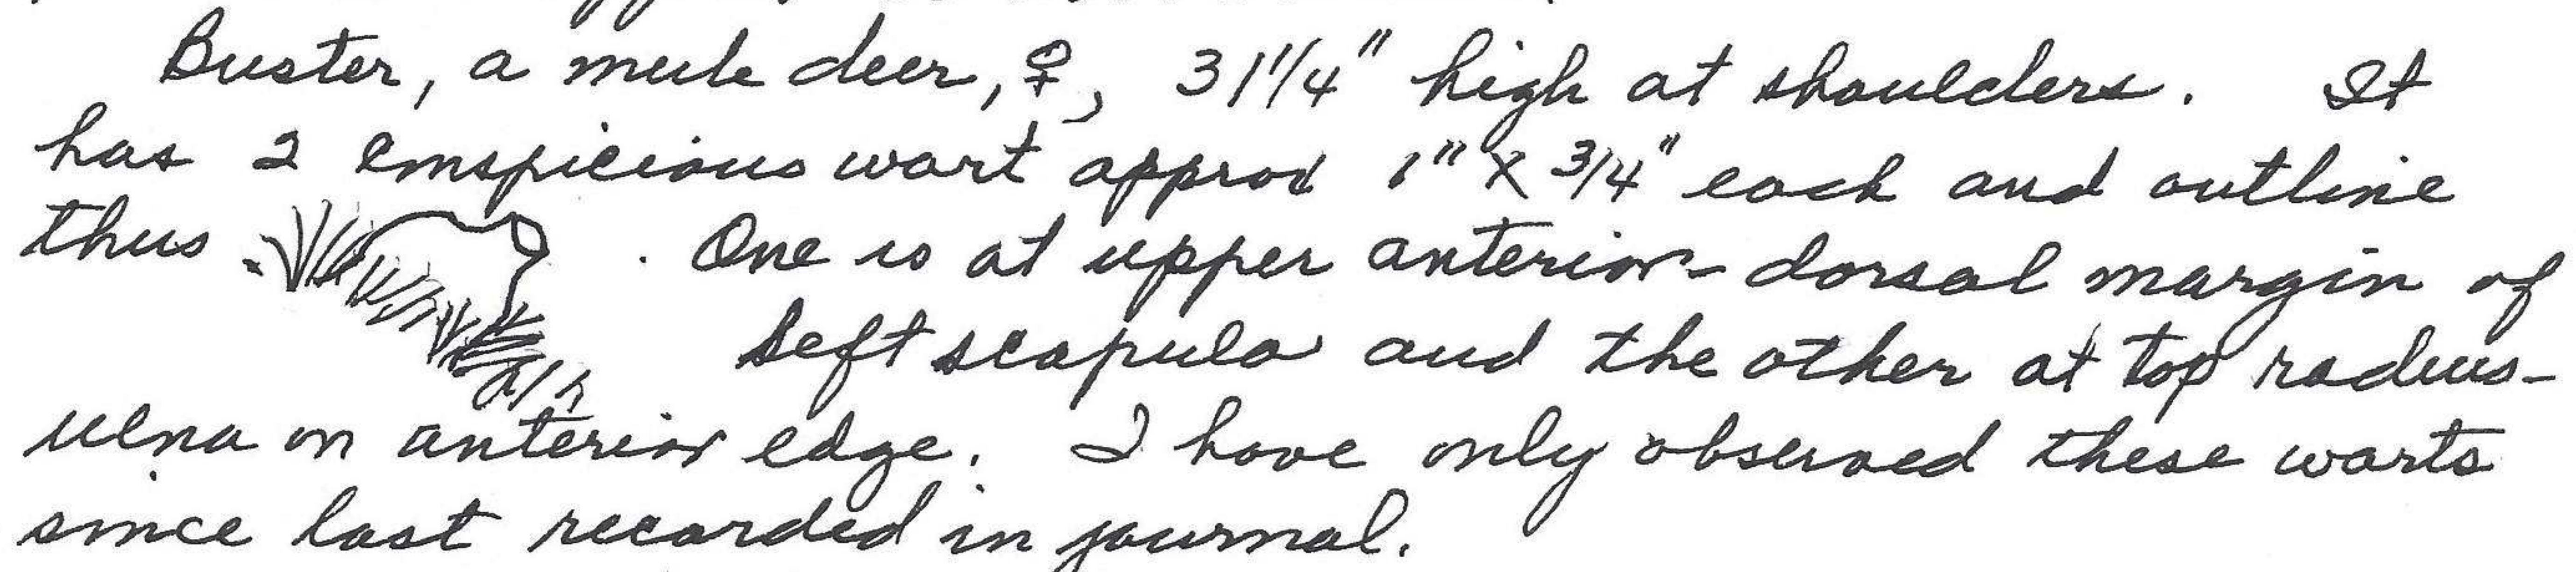 Buster, a mule deer, ♀, 31 1/4" high at shoulders. It
has 2 conspicious wart approx 1" X 3/4" each and outline
thus . One is at upper anterior-dorsal margin of
left scapula and the other at top radius-
ulna on anterior edge. I have only observed these warts
since last recorded in journal.